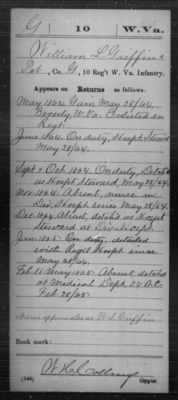 G 10 W. Va.
William L Griffin
Pvt., Co. G, 10 Reg't W. Va. Infantry.
Appears on Returns as follows:
May 1864 Gain May 28/64,
Beverly W. Va. Enlisted in
Regt.
June 1864 On duty, Hospt Steward
May 28/64.
Sept & Oct 1864. On duty, Detch
as Hospt Steward, May 28/64.
Nov. 1864 Absent, nurse in
Div. Hospt since May 28/64.
Dec. 1864 Absent, detch'd as Hospt
Steward at Div. Hospt
Jan 1865 On duty, detached
with Regtl Hospt since
May 28/64.
Feb. to May 1865 Absent, detch'd
at Medical Dept. 24 A.C.
Feb 28/65
Name appears also as W. S. Griffin
Book mark:
(546)
Copyist.